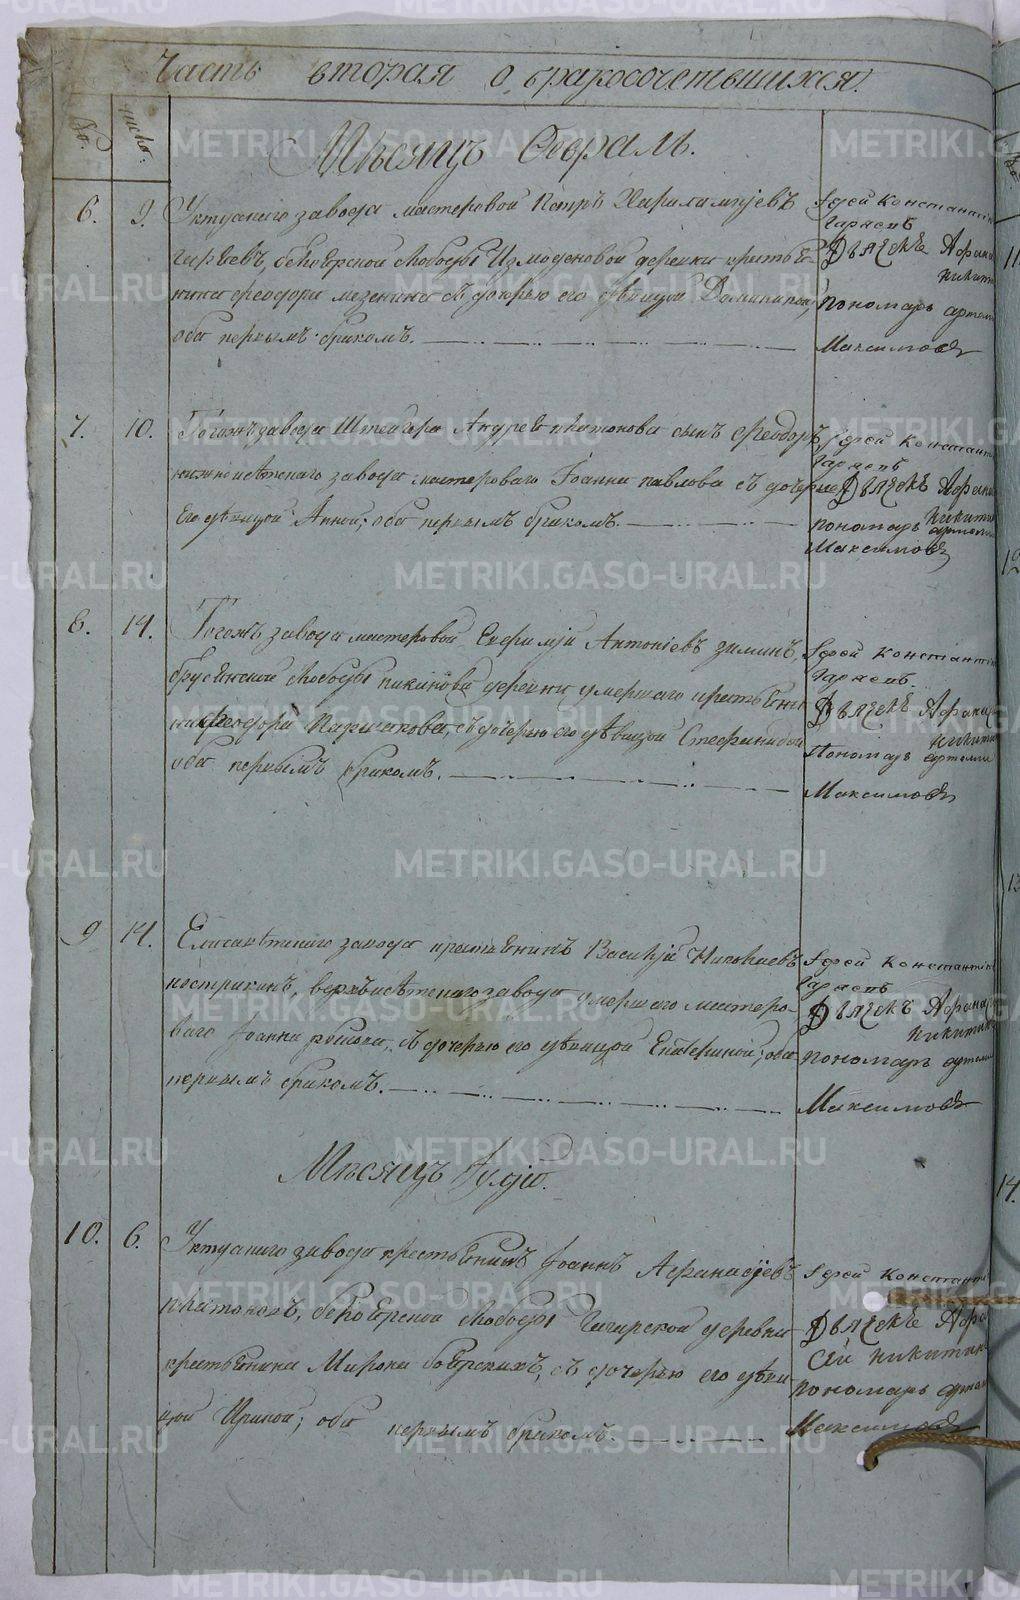 Часть вторая о бракосочетавшихся.
№. число.
Мѣсяцъ Февраль.
6. 9. Уктускаго завода мастеровой Петръ Харалампіевъ
белоярской слободы Измоденовой деревни крестья-
нина Феодора мезенина съ дочерью его дѣвицей Домникой,
оба первымъ бракомъ.
Іерей Константин
Дьячекъ Афана
Никити
пономарь артем
Максимовъ
7. 10. Тогожъ завода Штейгера Андрея платонова сынъ Феодоръ,
нижнеисѣтскаго завода мастероваго Іоанна павлова съ дочерью
Его дѣвицей Анной; оба первымъ бракомъ.
Іерей Констант
Дьячекъ Афана
Никити
пономарь артем
Максимовъ
8. 14. Тогожъ завода мастеровой Ефимій Антоніевъ зиминъ,
слободы деревни умершаго крестьяни
на феодора съ дочерью его дѣвицой Стефанидой
оба первымъ бракомъ.
Іерей Константи
Дьячекъ Афанас
Никити
Пономарь артеми
Максимовъ
9 14. Елисаветскаго завода крестьянинъ Василій Николаевъ
верхъисѣтскаго завода умершаго мастеро-
ваго Іоанна съ дочерью его дѣвицей Екатериной; оба
первымъ бракомъ.
Іерей Константин
Дьячекъ Афанас
Никитин
пономарь артем
Максимовъ
Мѣсяцъ Іулій.
10. 6. Уктускаго завода крестьянинъ Іоаннъ Афанасіевъ
платоновъ, белоярской слободы деревни
крестьянина Мирона боярскихъ, съ дочерью его дѣви-
цей Ириной; оба первымъ бракомъ.
Іерей Констант
Дьячекъ Афана
сій никитин
пономарь артем
Максимовъ
METRIKI.GASO-URAL.RU